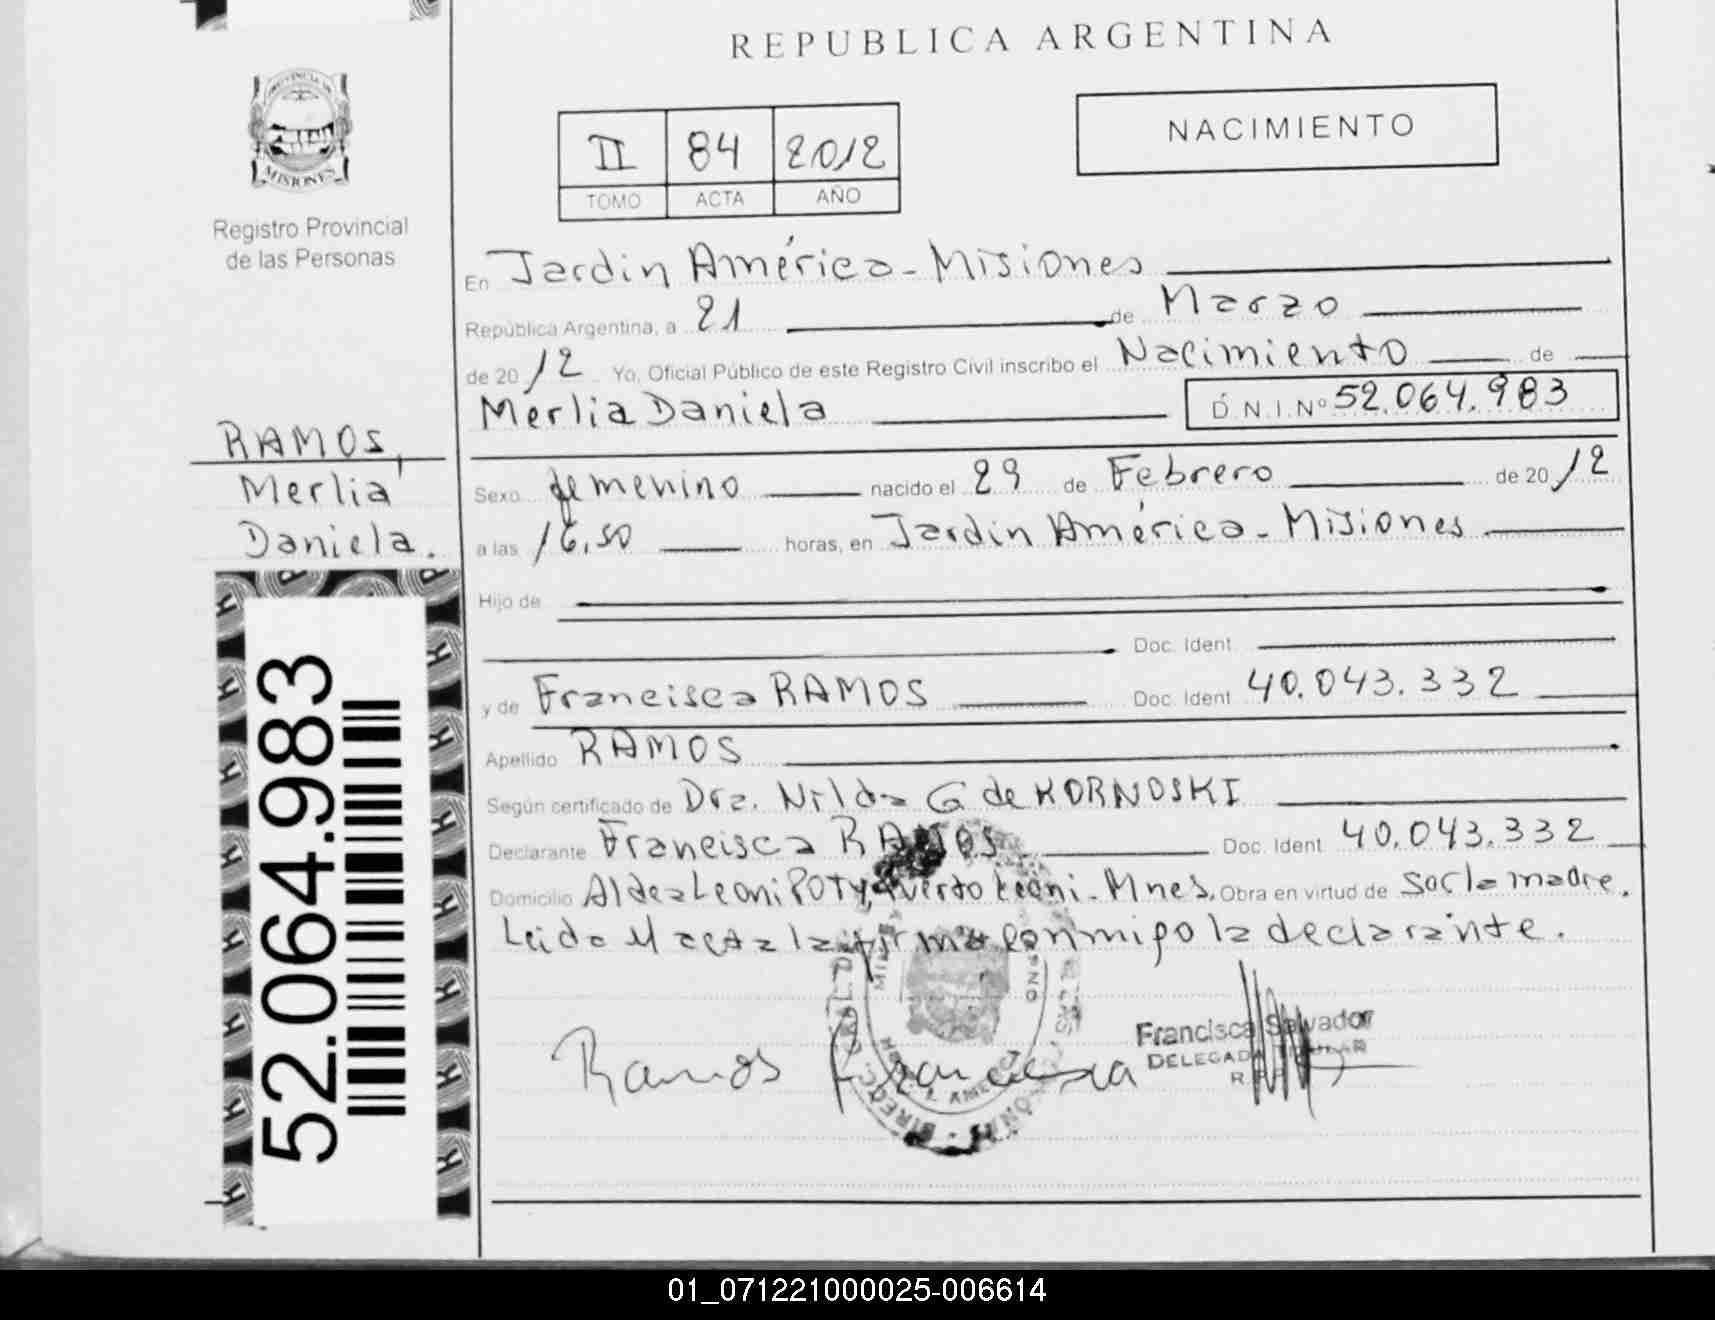 REPUBLICA ARGENTINA
NACIMIENTO
II 84 2012
TOMO ACTA AÑO
MISIONES
Registro Provincial
de las Personas
En Jardin América - Misiones
República Argentina, a 21 de Marzo
de 2012 Yo, Oficial Público de este Registro Civil inscribo el Nacimiento de
Merlia Daniela D.N.I.Nº 52.064.983
RAMOS,
Merlia
Daniela.
Sexo femenino nacido el 29 de Febrero de 2012
a las 16,50 horas, en Jardin América - Misiones
Hijo de
Doc. Ident.
y de Francisca RAMOS Doc. Ident. 40.043.332
Apellido RAMOS
Según certificado de Dra. Nilda G de KORNOSKI
Declarante Francisca RAMOS Doc. Ident. 40.043.332
Domicilio Aldea Leoni POTY, Puerto Leoni - Mnes. Obra en virtud de ser la madre.
Leida el acta la firma conmigo la declarante.
52.064.983
Ramos Francisca
Francisca Salvador
DELEGADA TITULAR
01_071221000025-006614